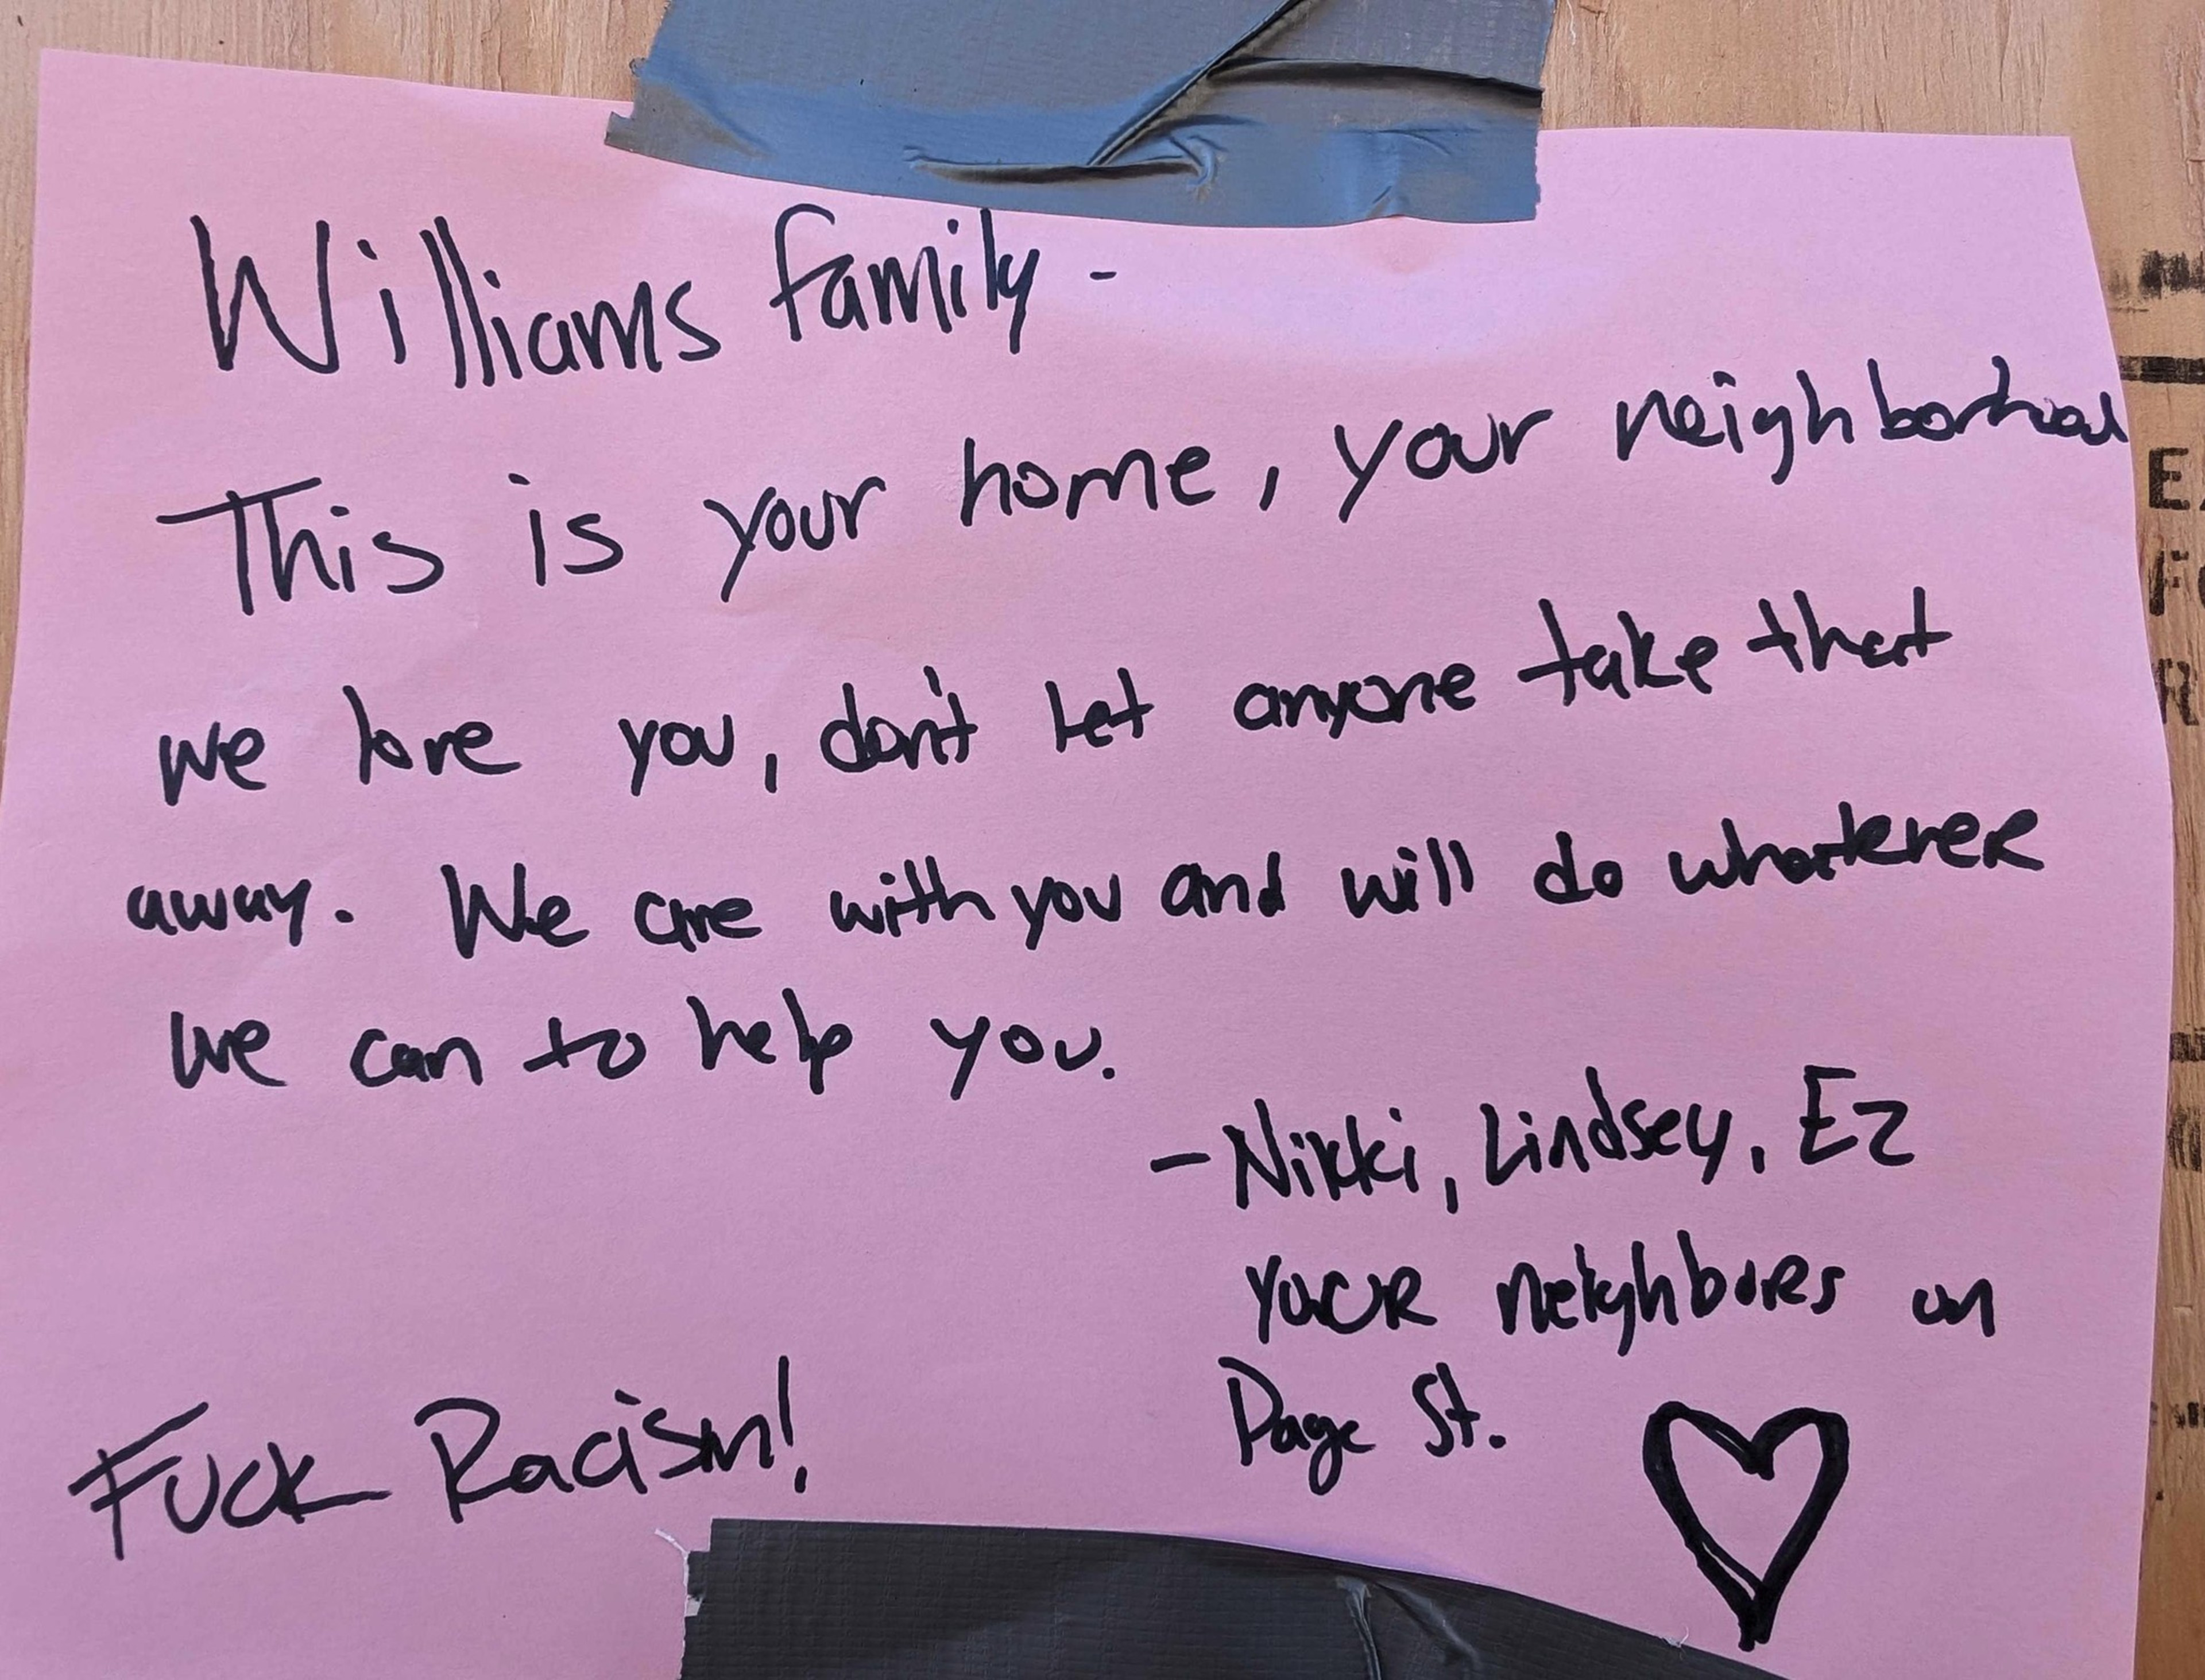 Williams family -
This is your home, your neighborhood
we love you, don't let anyone take that
away. We are with you and will do whatever
we can to help you.
- Nikki, Lindsey, Ez
your neighbors on
Page St.
Fuck Racism!